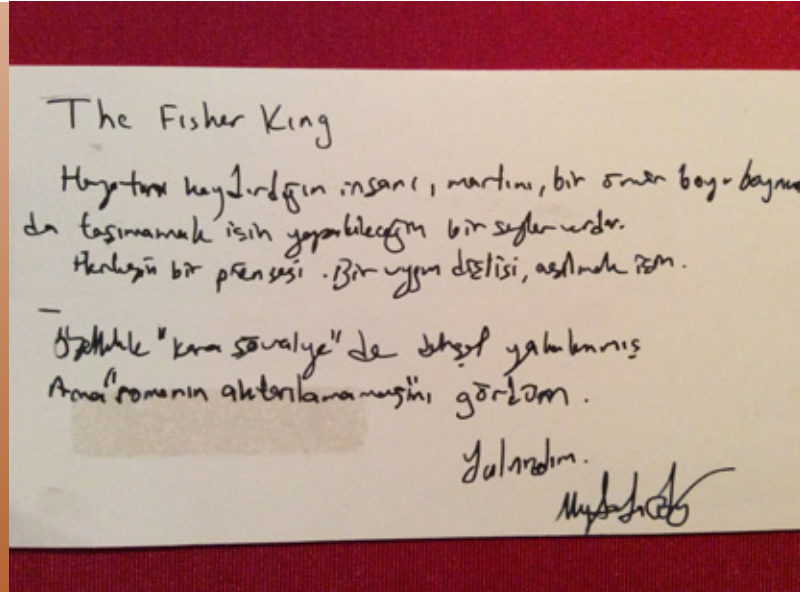 The Fisher King
Hayatını kaydırdığın insanı, martını, bir ömür boyu boynun
da taşımamak için yapabileceğin bir şeyler vardır.
Herkesin bir prensesi. Bir uygun dişlisi, asılmak için.
Özellikle "kara şövalye" de dehşet yakalanmış
Ama romanın aktarılamamışını gördüm.
Yalnızdım.